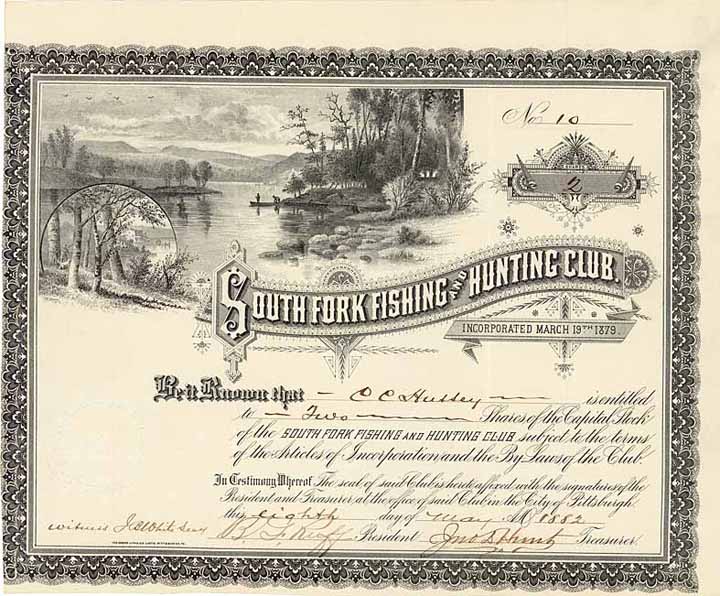 No 10
SHARES
2
SOUTH FORK FISHING AND HUNTING CLUB.
INCORPORATED MARCH 19TH 1879.
Be it Known that C C Hussey is entitled
to Two Shares of the Capital Stock
of the SOUTH FORK FISHING AND HUNTING CLUB, subject to the terms
of the Articles of Incorporation and the By Laws of the Club.
In Testimony Whereof The seal of said Club is hereto affixed with the signatures of the
President and Treasurer, at the office of said Club in the City of Pittsburgh
this eighth day of May AD 1882
witness
B F Ruff President Treasurer.